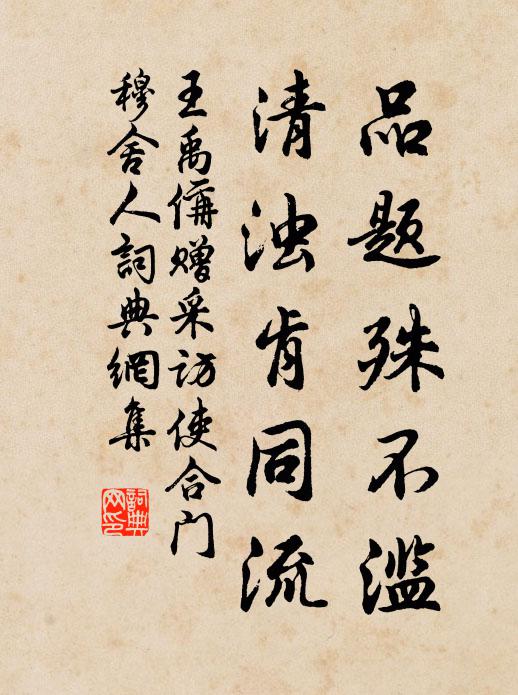 品题殊不滥
清浊肯同流
王禹偁赠采访使合门
穆舍人詞典網集
詞典网印